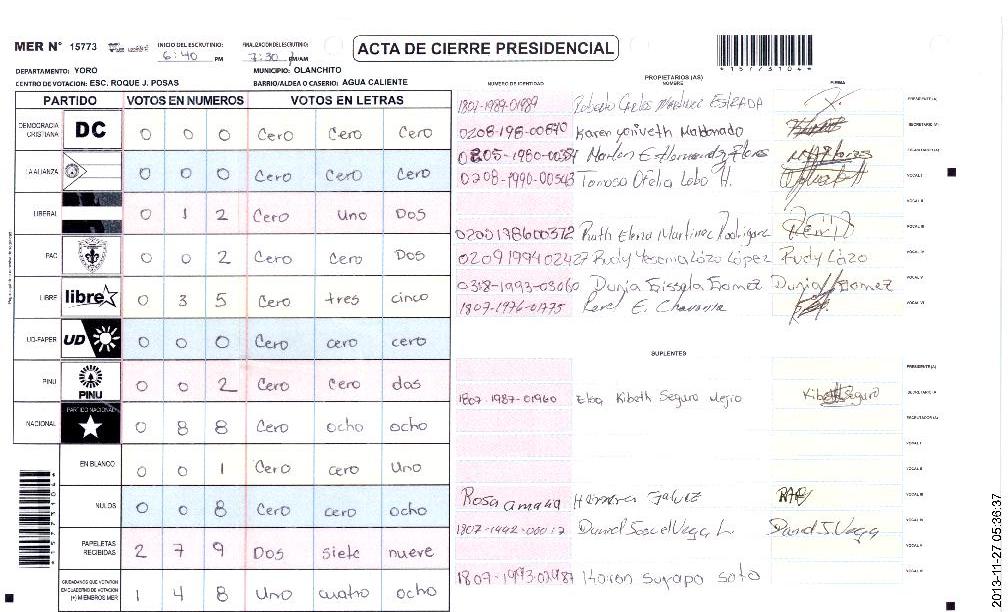 MER N° 15773
INICIO DEL ESCRUTINIO: 6:40 PM
FINALIZACION DEL ESCRUTINIO: 7:30 PM/AM
ACTA DE CIERRE PRESIDENCIAL
DEPARTAMENTO: YORO
MUNICIPIO: OLANCHITO
CENTRO DE VOTACION: ESC. ROQUE J. POSAS
BARRIO/ALDEA O CASERIO: AGUA CALIENTE
PARTIDO VOTOS EN NUMEROS VOTOS EN LETRAS
DEMOCRACIA CRISTIANA DC 0 0 0 Cero Cero Cero
LA ALIANZA 0 0 0 Cero Cero Cero
LIBERAL 0 1 2 Cero Uno Dos
PAC 0 0 2 Cero Cero Dos
LIBRE libre 0 3 5 Cero tres cinco
UD-FAPER UD 0 0 0 Cero cero cero
PINU PINU 0 0 2 Cero Cero dos
NACIONAL PARTIDO NACIONAL 0 8 8 Cero ocho ocho
EN BLANCO 0 0 1 Cero cero Uno
NULOS 0 0 8 Cero Cero ocho
PAPELETAS RECIBIDAS 2 7 9 Dos siete nueve
CIUDADANOS QUE VOTARON EN CUADERNO DE VOTACION (+) MIEMBROS MER 1 4 8 Uno cuatro ocho
PROPIETARIOS (AS)
NUMERO DE IDENTIDAD NOMBRE FIRMA
1807-1989-01989 Roberto Carlos Martinez ESTRADA PRESIDENTE(A)
Karen Yoriveth Maldonado SECRETARIO(A)
Marlen E. Hernandez Flores
Tomasa Ofelia Lobo H. VOCAL I
VOCAL II
Ruth Elena Martinez Rodriguez VOCAL III
Rudy Yesenia Lozo López Rudy Lozo VOCAL IV
0318-1993-03060 Dunia Gissela Gomez Dunia Gomez VOCAL V
1807-1976-01775 E. Chavarria VOCAL VI
SUPLENTES
PRESIDENTE(A)
1807-1987-01960 Elba Kibeth Seguro Mejio Kibeth Seguro SECRETARIO(A)
ESCRUTADOR(A)
VOCAL I
VOCAL II
Rosa amalia Herrera Galvez VOCAL III
Daniel Vega L. Daniel S. Vega VOCAL IV
VOCAL V
Karen Suyapa Soto VOCAL VI
15773104
2013-11-27 05:36:37